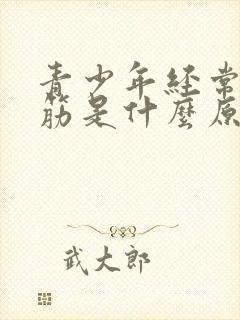 青少年经常
筋是什麼原
武大郎